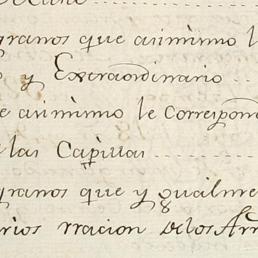 granos que asimismo l
y Extraordinario
e asimismo le Correspon
las Capillas
granos que ygualme
arios rracion delos Arr